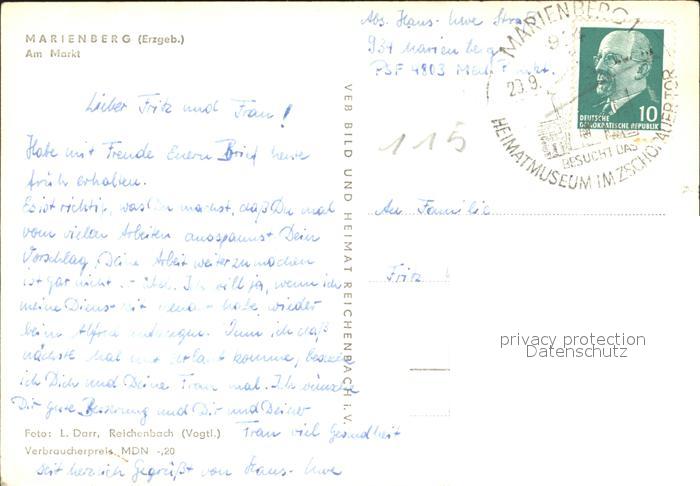 MARIENBERG (Erzgeb.)
Am Markt
Lieber Fritz und Frau!
Habe mit Freude Euern Brief heute
früh erhalten.
Es ist richtig, was Du machst, daß Du mal
vom vielen Arbeiten ausspannst Dein
Vorschlag, Deine Arbeit weiter zu machen
ist gar nicht. Ich will ja, wenn ich
meine Dienstzeit habe, wieder
beim Alfred anfangen. Wenn ich das
nächste Mal auf Urlaub komme, besuche
ich Dich und Deine Frau mal. Ich wünsche
Dir gute Besserung und Dir und Deiner
Frau viel Gesundheit
seit herzlich Gegrüßt von Hans-Uwe
Foto: L. Darr, Reichenbach (Vogtl.)
Verbraucherpreis MDN -,20
VEB BILD UND HEIMAT REICHENBACH i. V.
Abs. Hans-Uwe
934 Marienberg
PSF 4803
115
MARIENBERG
934
20.9.
BESUCHT DAS
HEIMATMUSEUM IM ZSCHOPAUER TOR
DEUTSCHE
DEMOKRATISCHE REPUBLIK
10
An Familie
Fritz
privacy protection
Datenschutz